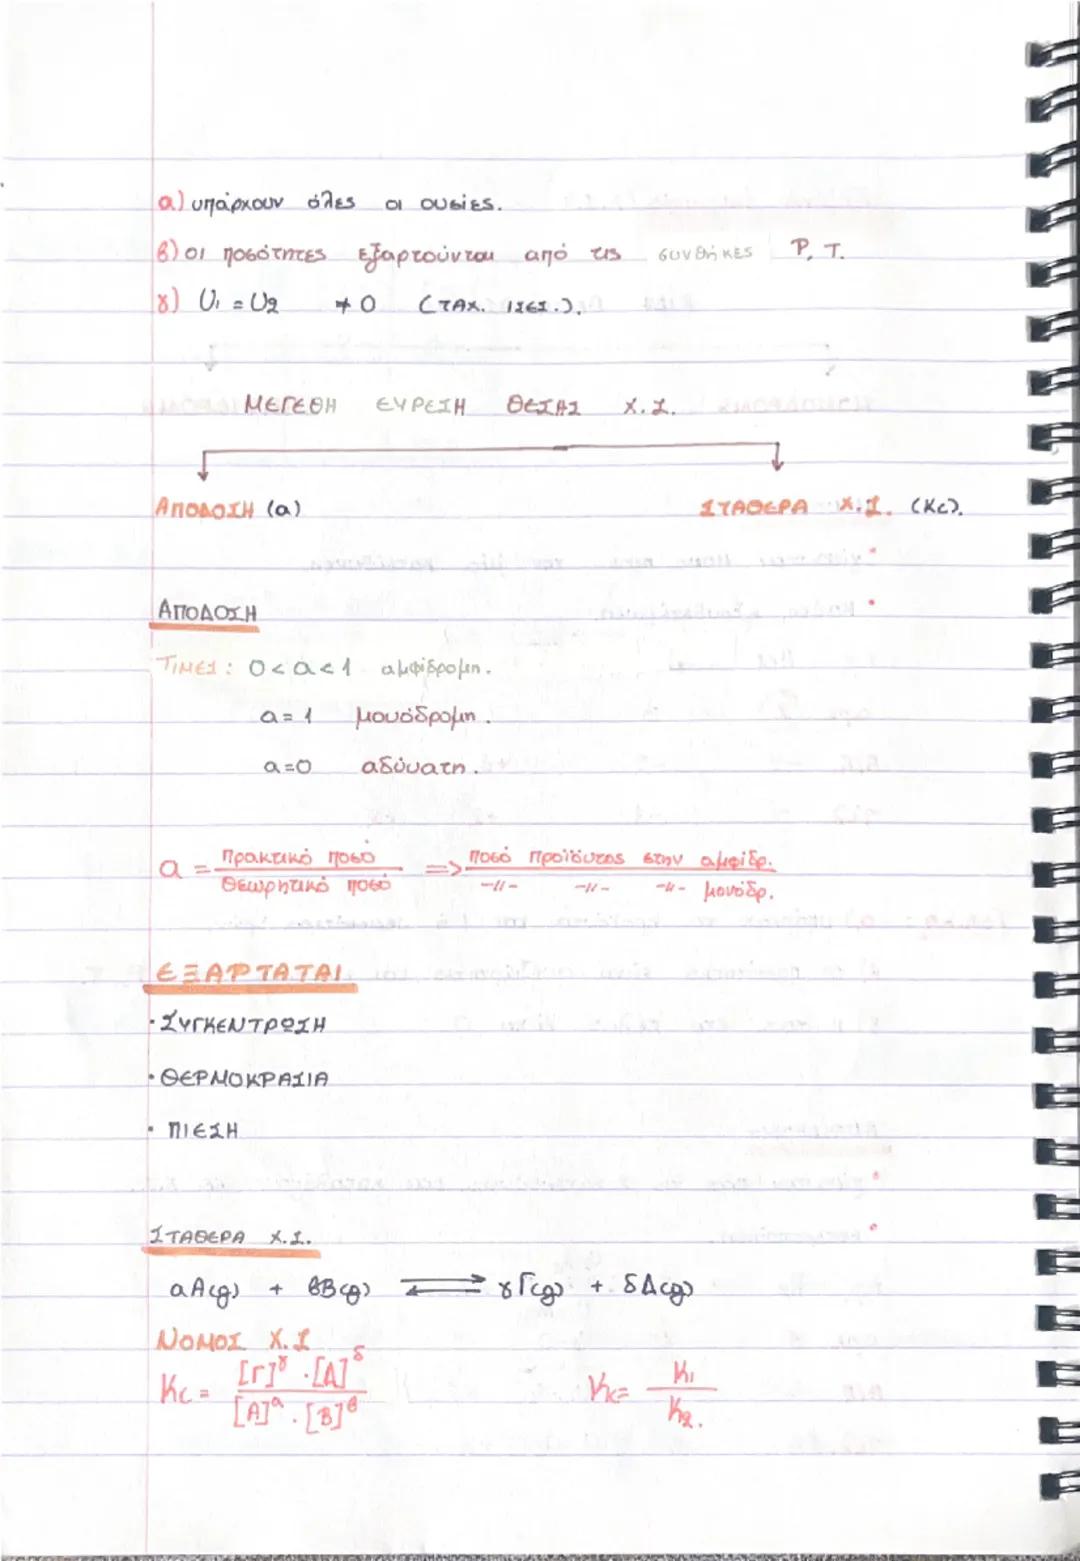 α) υπάρχουν όλες οι ουσίες.
β) οι ποσότητες εξαρτούνται από τις συνθήκες P, T.
γ) U₁ = U₂ ≠ 0 (ΤΑΧ. ΙΣΗΣ.).
ΜΕΓΕΘΗ ΕΥΡΕΣΗ ΘΕΣΗΣ Χ.Ι.
ΑΠΟΔΟΣΗ (α) ΣΤΑΘΕΡΑ Χ.Ι. (Kc).
ΑΠΟΔΟΣΗ
ΤΙΜΕΣ: 0<α<1 αμφίδρομη.
α=1 μονόδρομη.
α=0 αδύνατη.
α = πρακτικό ποσό / θεωρητικό ποσό => ποσό προϊόντος στην αμφίδρ. / -//- -//- -//- μονόδρ.
ΕΞΑΡΤΑΤΑΙ
· ΣΥΓΚΕΝΤΡΩΣΗ
· ΘΕΡΜΟΚΡΑΣΙΑ
· ΠΙΕΣΗ
ΣΤΑΘΕΡΑ Χ.Ι.
αA(g) + βB(g) ⇌ γΓ(g) + δΔ(g)
ΝΟΜΟΣ Χ.Ι
Kc = [Γ]^γ · [Δ]^δ / [A]^α · [B]^β Kc = K₁ / K₂.